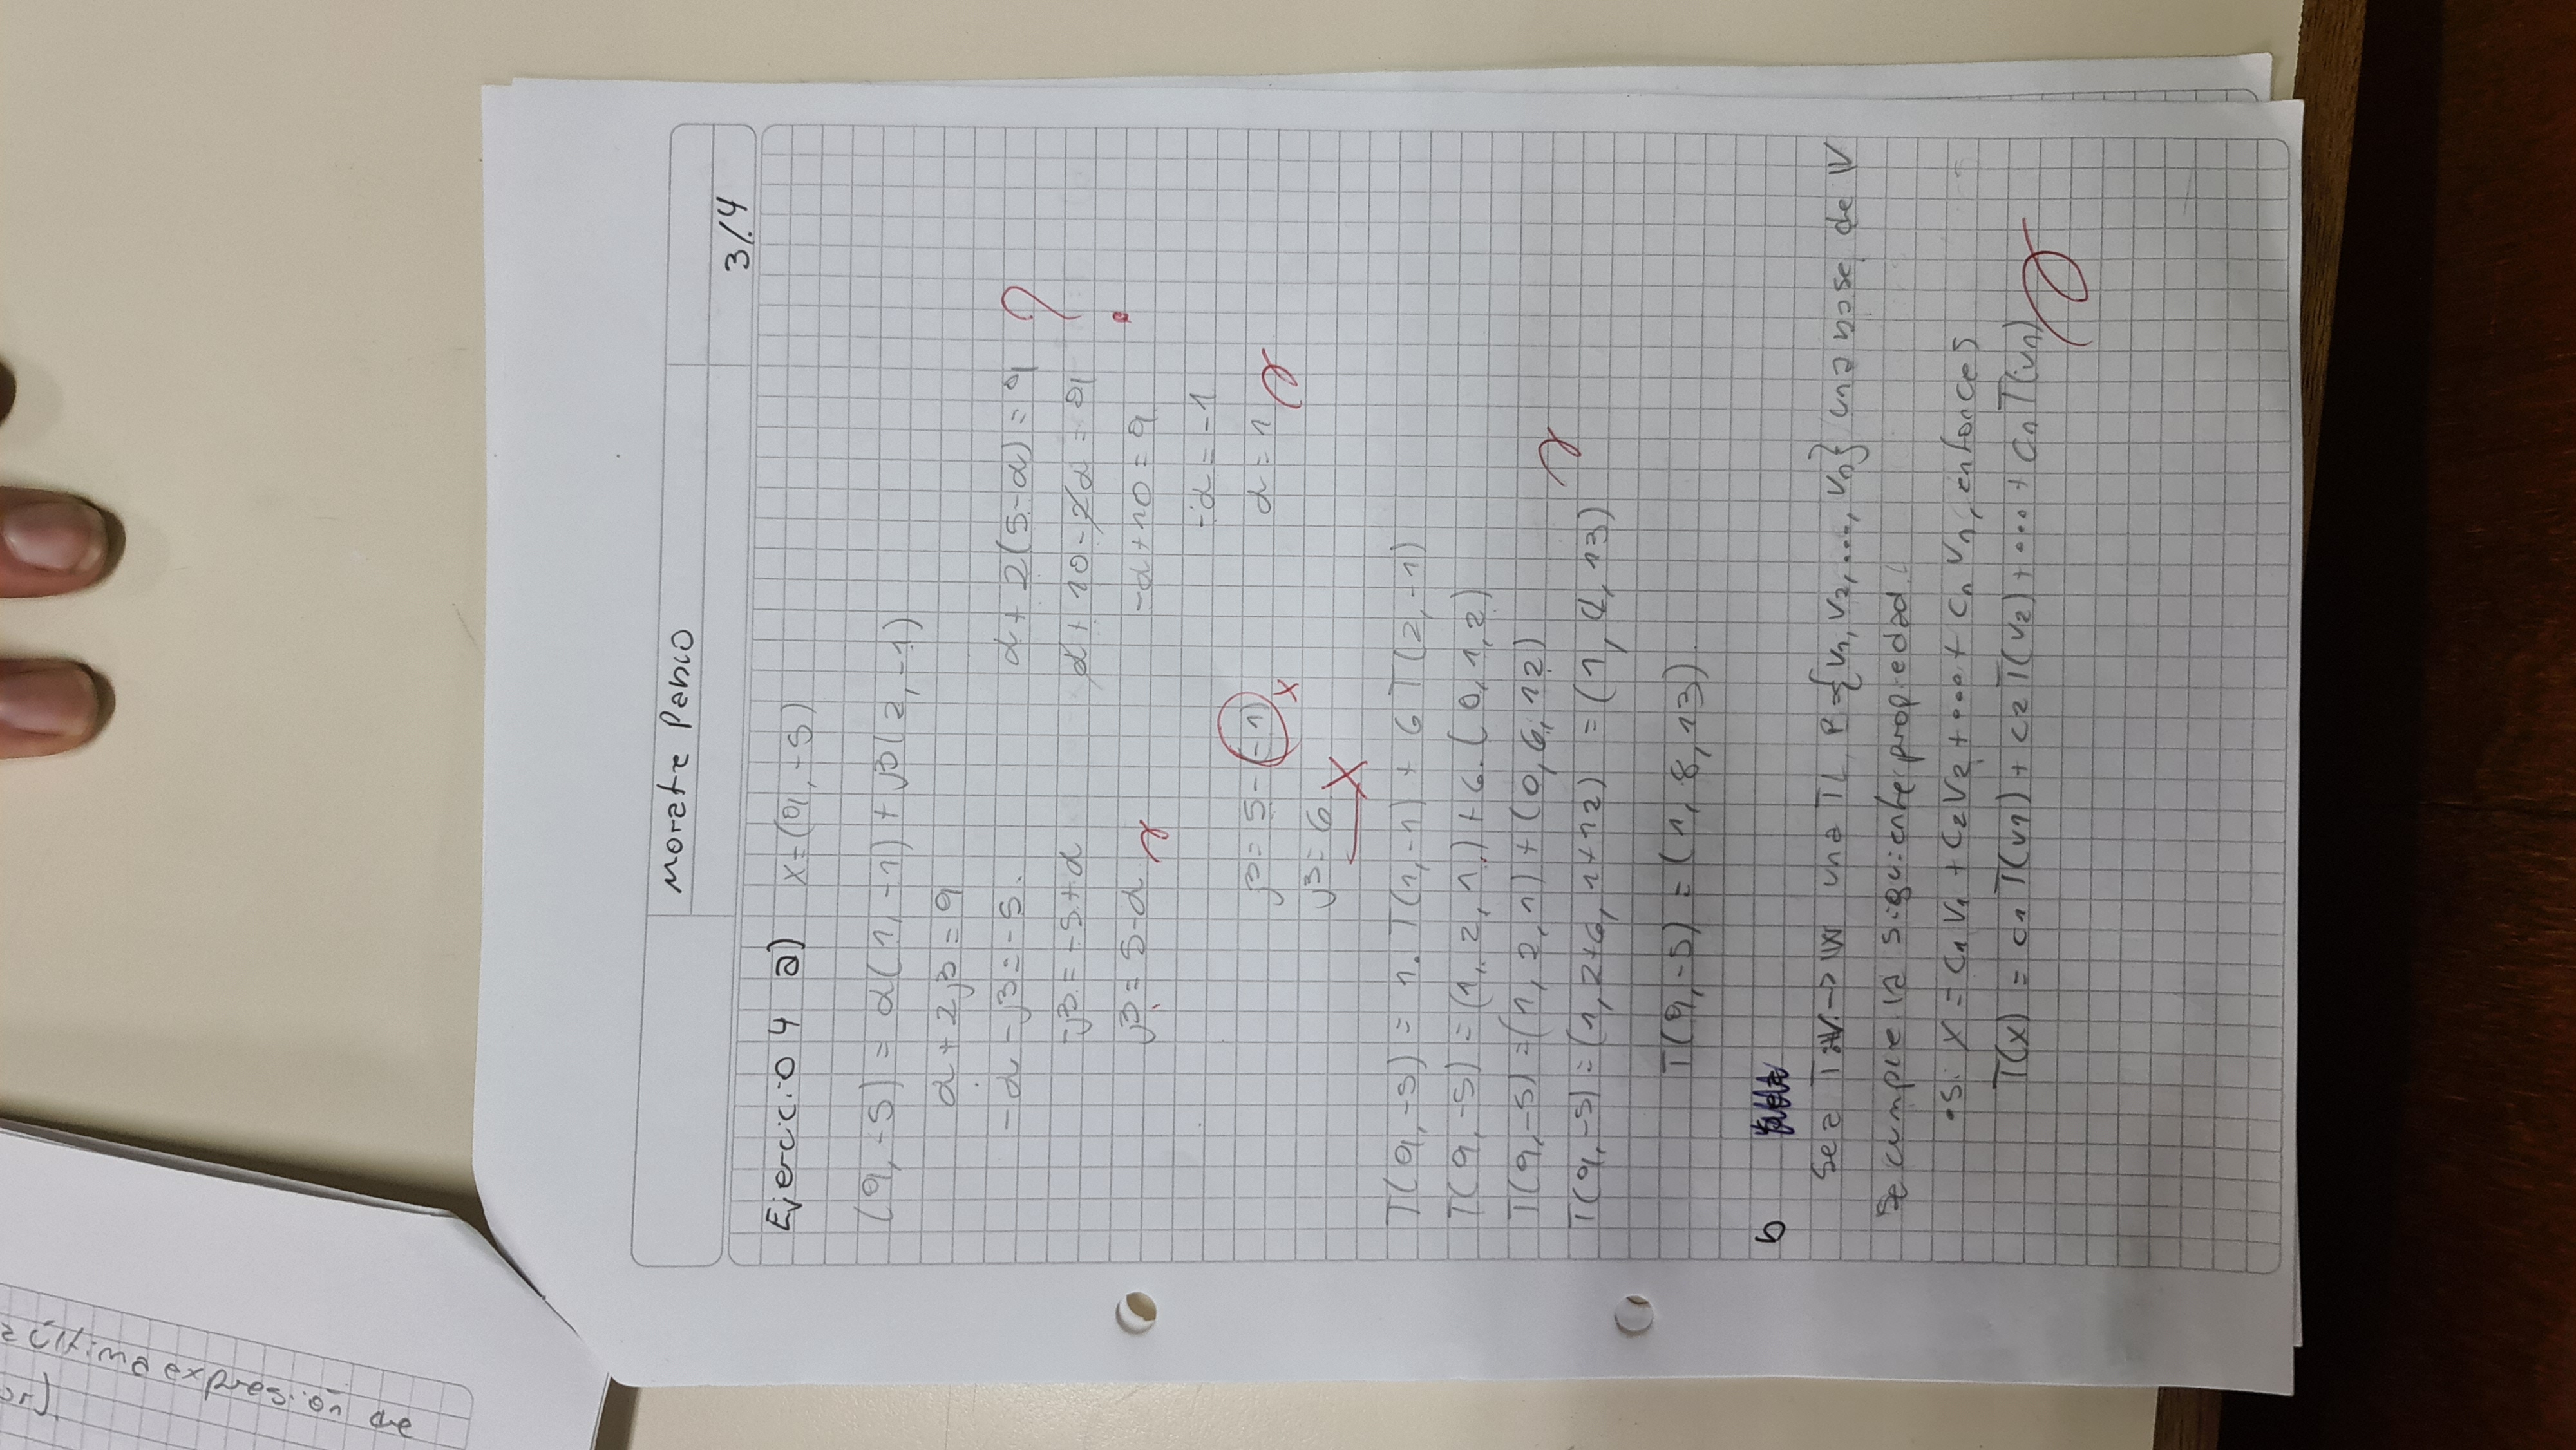 última expresión de
Morete Pablo
3/.4
Ejercicio 4 a) x=(9,-5)
(9,-5) = α(1,-1) + β(2,-1)
α + 2β = 9
-α - β = -5. α + 2(5-α) = 9 ?
-β = -5+α α + 10 - 2α = 9
β = 5-α -α + 10 = 9
-α = -1
β = 5-(-1) x α = 1
β = 6 X
T(9,-5) = 1. T(1,-1) + 6 T(2,-1)
T(9,-5) = (1, 2, 1) + 6. (0,1,2)
T(9,-5) = (1, 2, 1) + (0, 6, 12)
T(9,-5) = (1, 2+6, 1+12) = (1, 8, 13)
T(9,-5) = (1, 8, 13)
b
Sea T: V → W una TL B={v1, v2, ..., vn} una base de V
Se cumple la siguiente propiedad
•si x = c1 v1 + c2 v2 + ... + cn vn, entonces
T(x) = c1 T(v1) + c2 T(v2) + ... + cn T(vn)